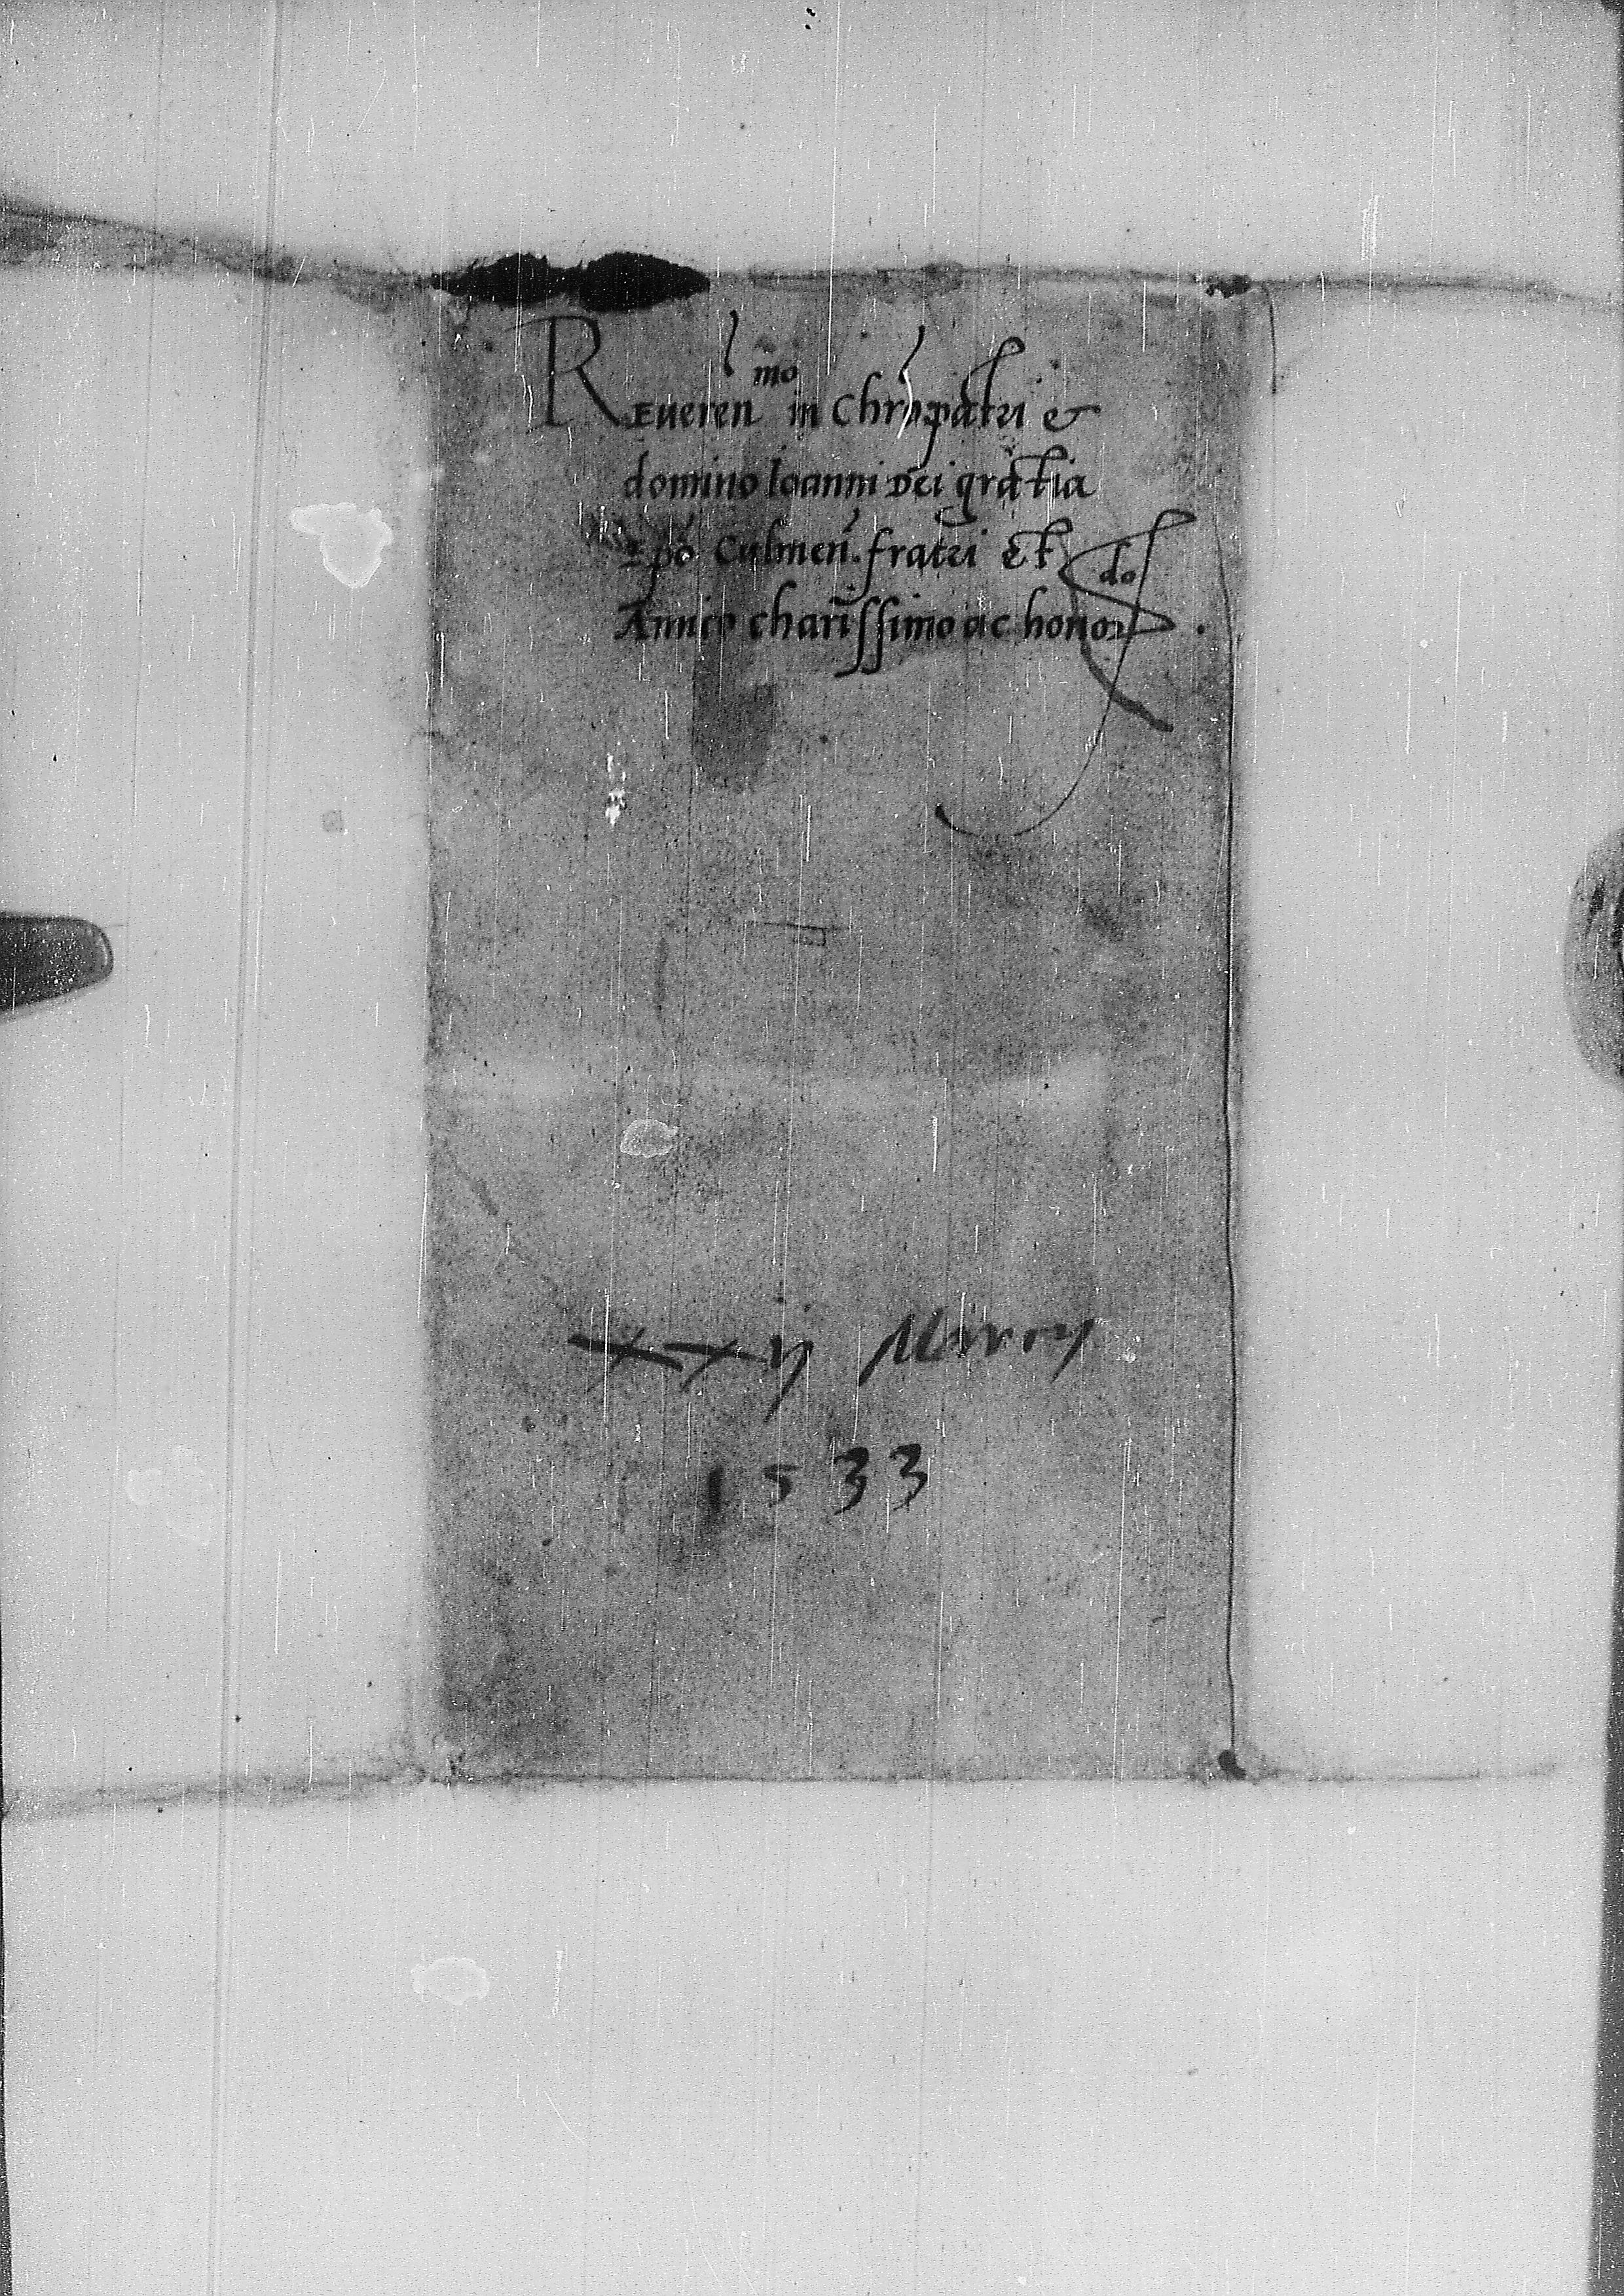 Reueren mo in Chro patri et
domino Ioanni Dei gratia
Epo Culmen. fratri et
Amico charissimo ac honor do.
xxij Marcij
1533